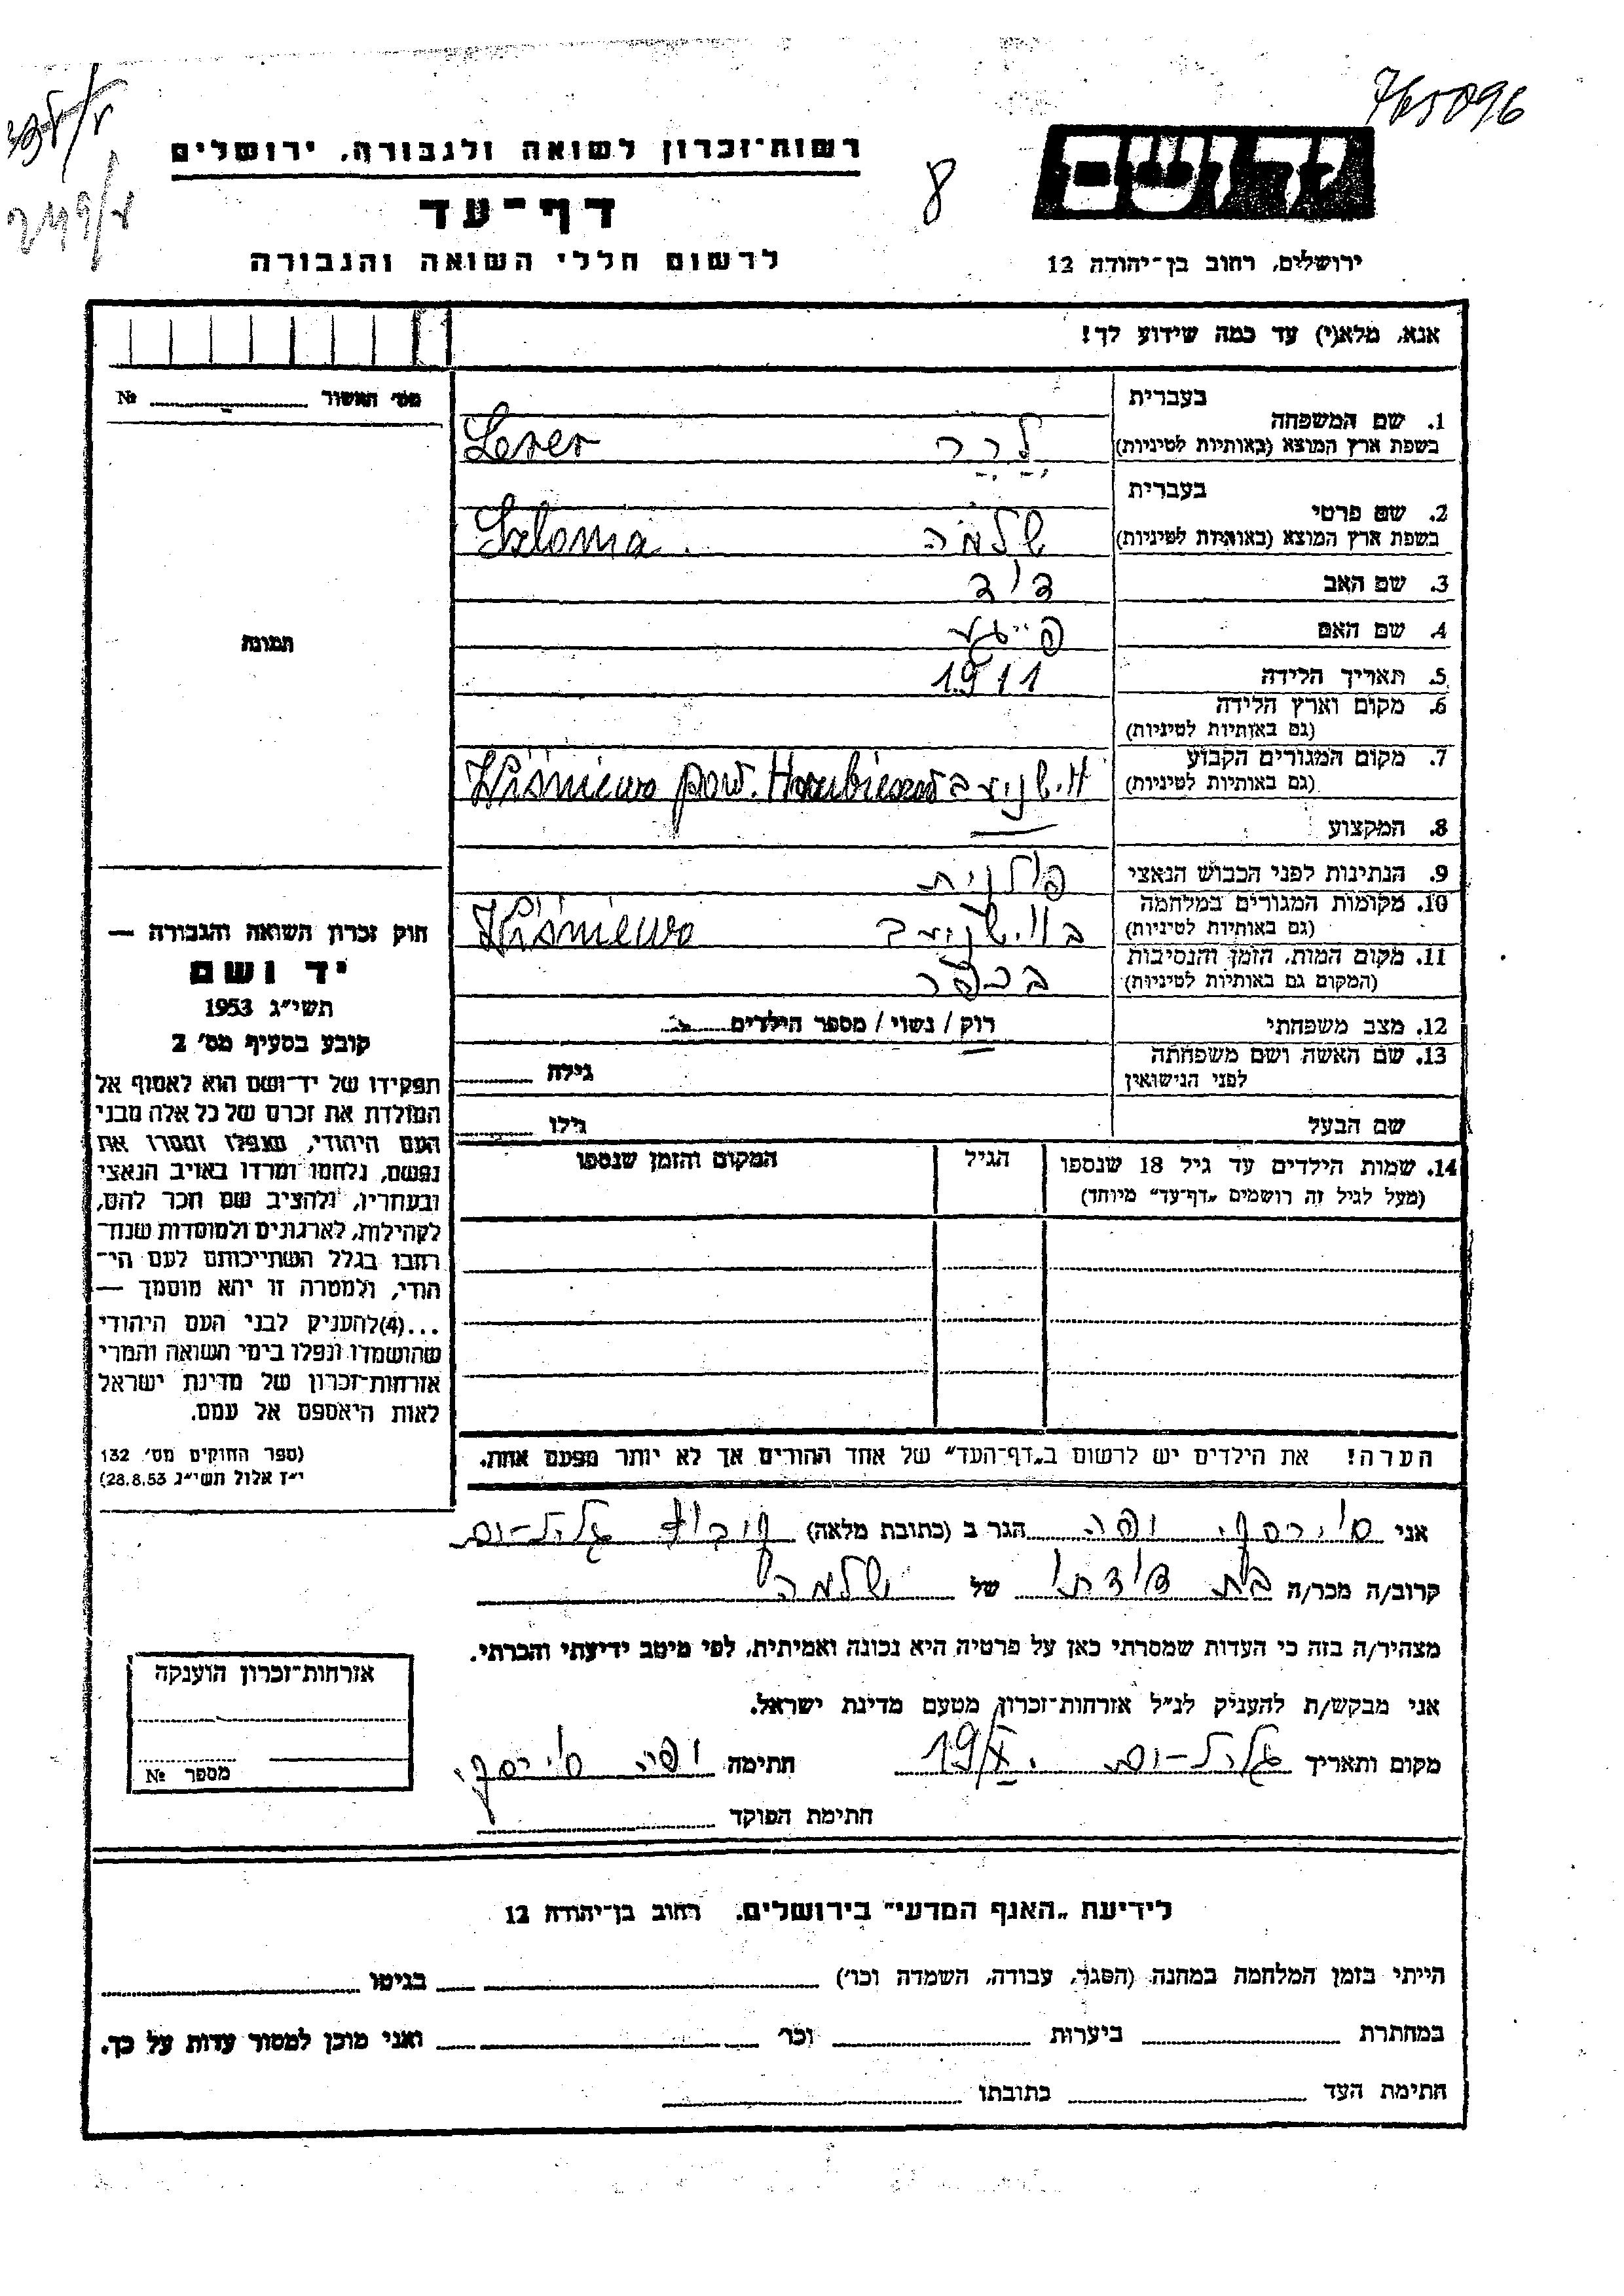 765096
רשות־זכרון לשואה ולגבורה, ירושלים
8
דף־עד
לרשום חללי השואה והגבורה
ירושלים, רחוב בן־יהודה 12
אנא, מלא(י) עד כמה שידוע לך!
מס׳ האשור № 
תמונה
בעברית
1. שם המשפחה
בשפת ארץ המוצא (באותיות לטיניות) לרר Lerer
בעברית
2. שם פרטי
בשפת ארץ המוצא (באותיות לטיניות) שלמה Szloma
3. שם האב דוד
4. שם האם פייגע
5. תאריך הלידה 1911
6. מקום וארץ הלידה
(גם באותיות לטיניות)
7. מקום המגורים הקבוע
(גם באותיות לטיניות) Wiśniewo pow.
8. המקצוע
9. הנתינות לפני הכבוש הנאצי פולנית
10. מקומות המגורים במלחמה
(גם באותיות לטיניות) Wiśniewo
11. מקום המות, הזמן והנסיבות
(המקום גם באותיות לטיניות) בכפר
12. מצב משפחתי רוק / נשוי / מספר הילדים
13. שם האשה ושם משפחתה
לפני הנישואין גילה
שם הבעל גילו
14. שמות הילדים עד גיל 18 שנספו הגיל המקום והזמן שנספו
(מעל לגיל זה רושמים „דף־עד״ מיוחד)
חוק זכרון השואה והגבורה —
יד ושם
תשי״ג 1953
קובע בסעיף מס׳ 2
תפקידו של יד־ושם הוא לאסוף אל
המולדת את זכרם של כל אלה מבני
העם היהודי, שנפלו ומסרו את
נפשם, נלחמו ומרדו באויב הנאצי
ובעוזריו, ולהציב שם וזכר להם,
לקהילות, לארגונים ולמוסדות שנח־
רבו בגלל השתייכותם לעם הי־
הודי, ולמטרה זו יהא מוסמך —
...(4)להעניק לבני העם היהודי
שהושמדו ונפלו בימי השואה והמרי
אזרחות־זכרון של מדינת ישראל
לאות היאספם אל עמם.
(ספר החוקים מס׳ 132
י״ז אלול תשי״ג 28.8.53)
הערה! את הילדים יש לרשום ב„דף־העד״ של אחד ההורים אך לא יותר מפעם אחת.
אני יפה הגר ב (כתובת מלאה) קיבוץ גליל-ים
קרוב/ה מכר/ה בת דודתו של שלמה
מצהיר/ה בזה כי העדות שמסרתי כאן על פרטיה היא נכונה ואמיתית, לפי מיטב ידיעתי והכרתי.
אני מבקש/ת להעניק לנ״ל אזרחות־זכרון מטעם מדינת ישראל.
מקום ותאריך גליל-ים 19/X חתימה יפה
חתימת הפוקד
אזרחות־זכרון הוענקה
מספר №
לידיעת „האגף המדעי״ בירושלים, רחוב בן־יהודה 12
הייתי בזמן המלחמה במחנה (הסגר, עבודה, השמדה וכו׳) בגיטו
במחתרת ביערות וכו׳ ואני מוכן למסור עדות על כך.
חתימת העד כתובתו